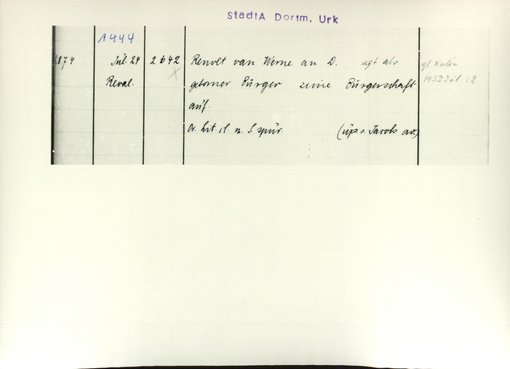 StadtA Dortm. Urk
1444
879 Jul 29 2642 Renolt van Werne an D. : agt als
Reval. geborner Bürger seine Bürgerschaft
auf.
Or. lit. cl. m. S. spur. (up s. Jacobs av.)